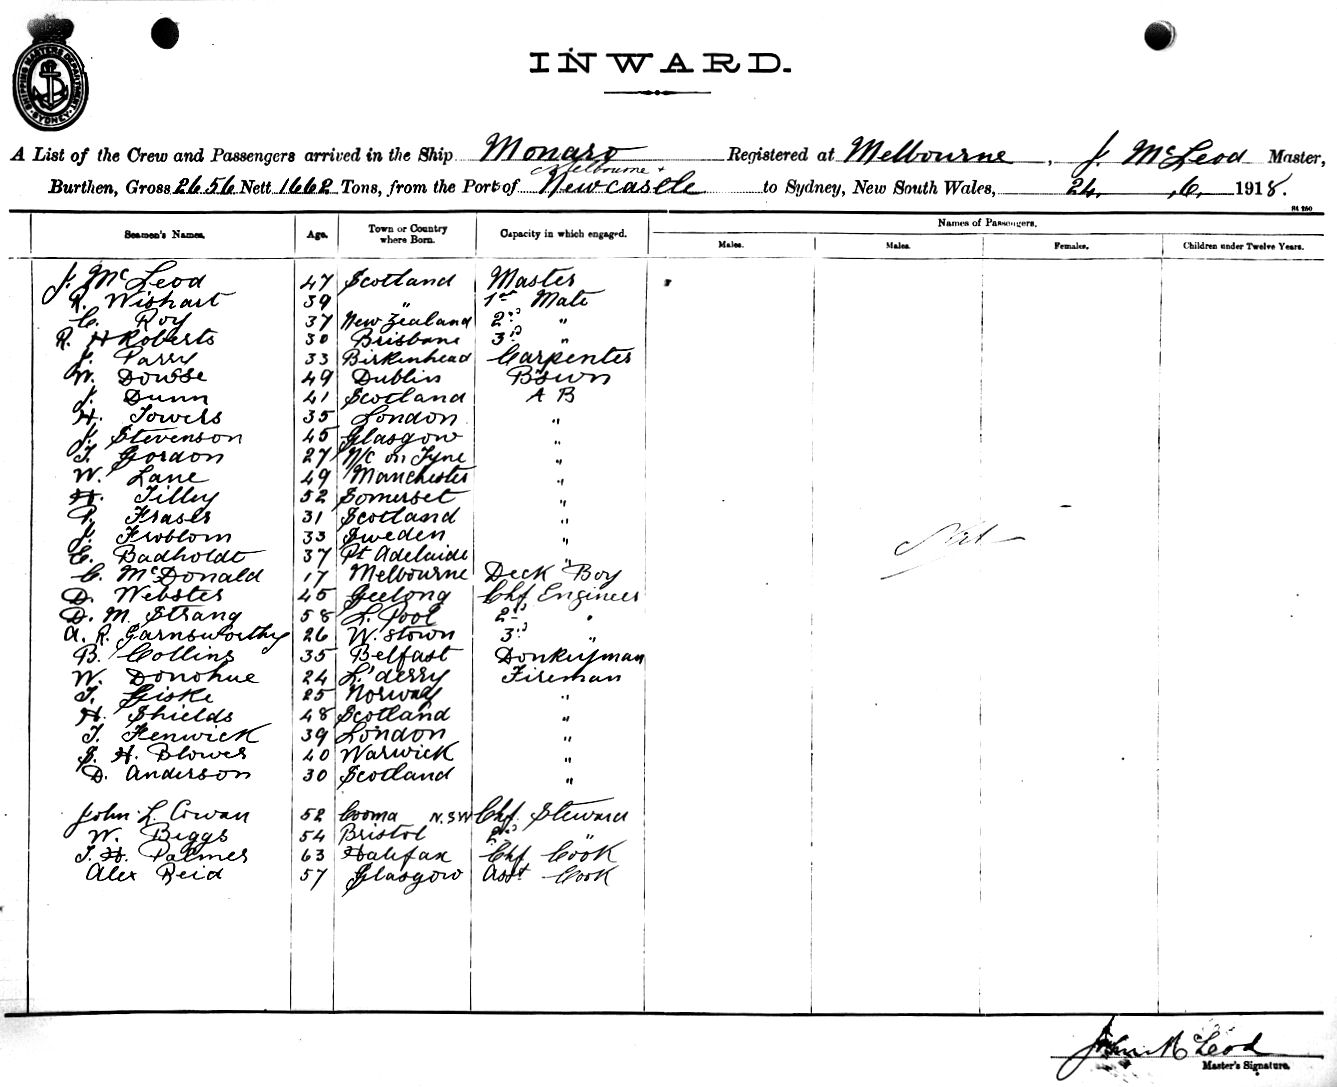 SHIPPING MASTERS DEPARTMENT SYDNEY
INWARD.
A List of the Crew and Passengers arrived in the Ship Monaro Registered at Melbourne, J. McLeod Master,
Melbourne +
Burthen, Gross 2656 Nett 1662 Tons, from the Port of Newcastle to Sydney, New South Wales, 24. 6. 1918.
Seamen's Names. Age. Town or Country where Born. Capacity in which engaged. Names of Passengers.
Males. Males. Females. Children under Twelve Years.
J. McLeod 47 Scotland Master
R. Wishart 39 " 1st Mate
C. Roy 37 New Zealand 2nd "
R. H Roberts 30 Brisbane 3rd "
J. Parry 33 Birkenhead Carpenter
W. Dowse 49 Dublin B'swn
J. Dunn 41 Scotland A B
H. Towers 35 London "
J. Stevenson 45 Glasgow "
T. Gordon 27 N/c on Tyne "
W. Lane 49 Manchester "
H. Tilley 52 Somerset "
P. Fraser 31 Scotland "
J. Froblom 33 Sweden "
C. Badholdt 37 Pt Adelaide "
C. McDonald 17 Melbourne Deck Boy
D. Webster 45 Geelong Chf Engineer
D. M. Strang 58 L. Pool 2nd "
A. R. Garnsworthy 26 W. stown 3rd "
B. Collins 35 Belfast Donkeyman
W. Donohue 24 L'derry Fireman
T. Giske 25 Norway "
H. Shields 48 Scotland "
T. Fenwick 39 London "
S. H. Blower 40 Warwick "
D. Anderson 30 Scotland "
John L. Cowan 52 Cooma N.SW Chf Steward
W. Biggs 54 Bristol 2nd "
T. H. Palmer 63 Halifax Chf Cook
Alex Reid 57 Glasgow Asst Cook
John McLeod
Master's Signature.